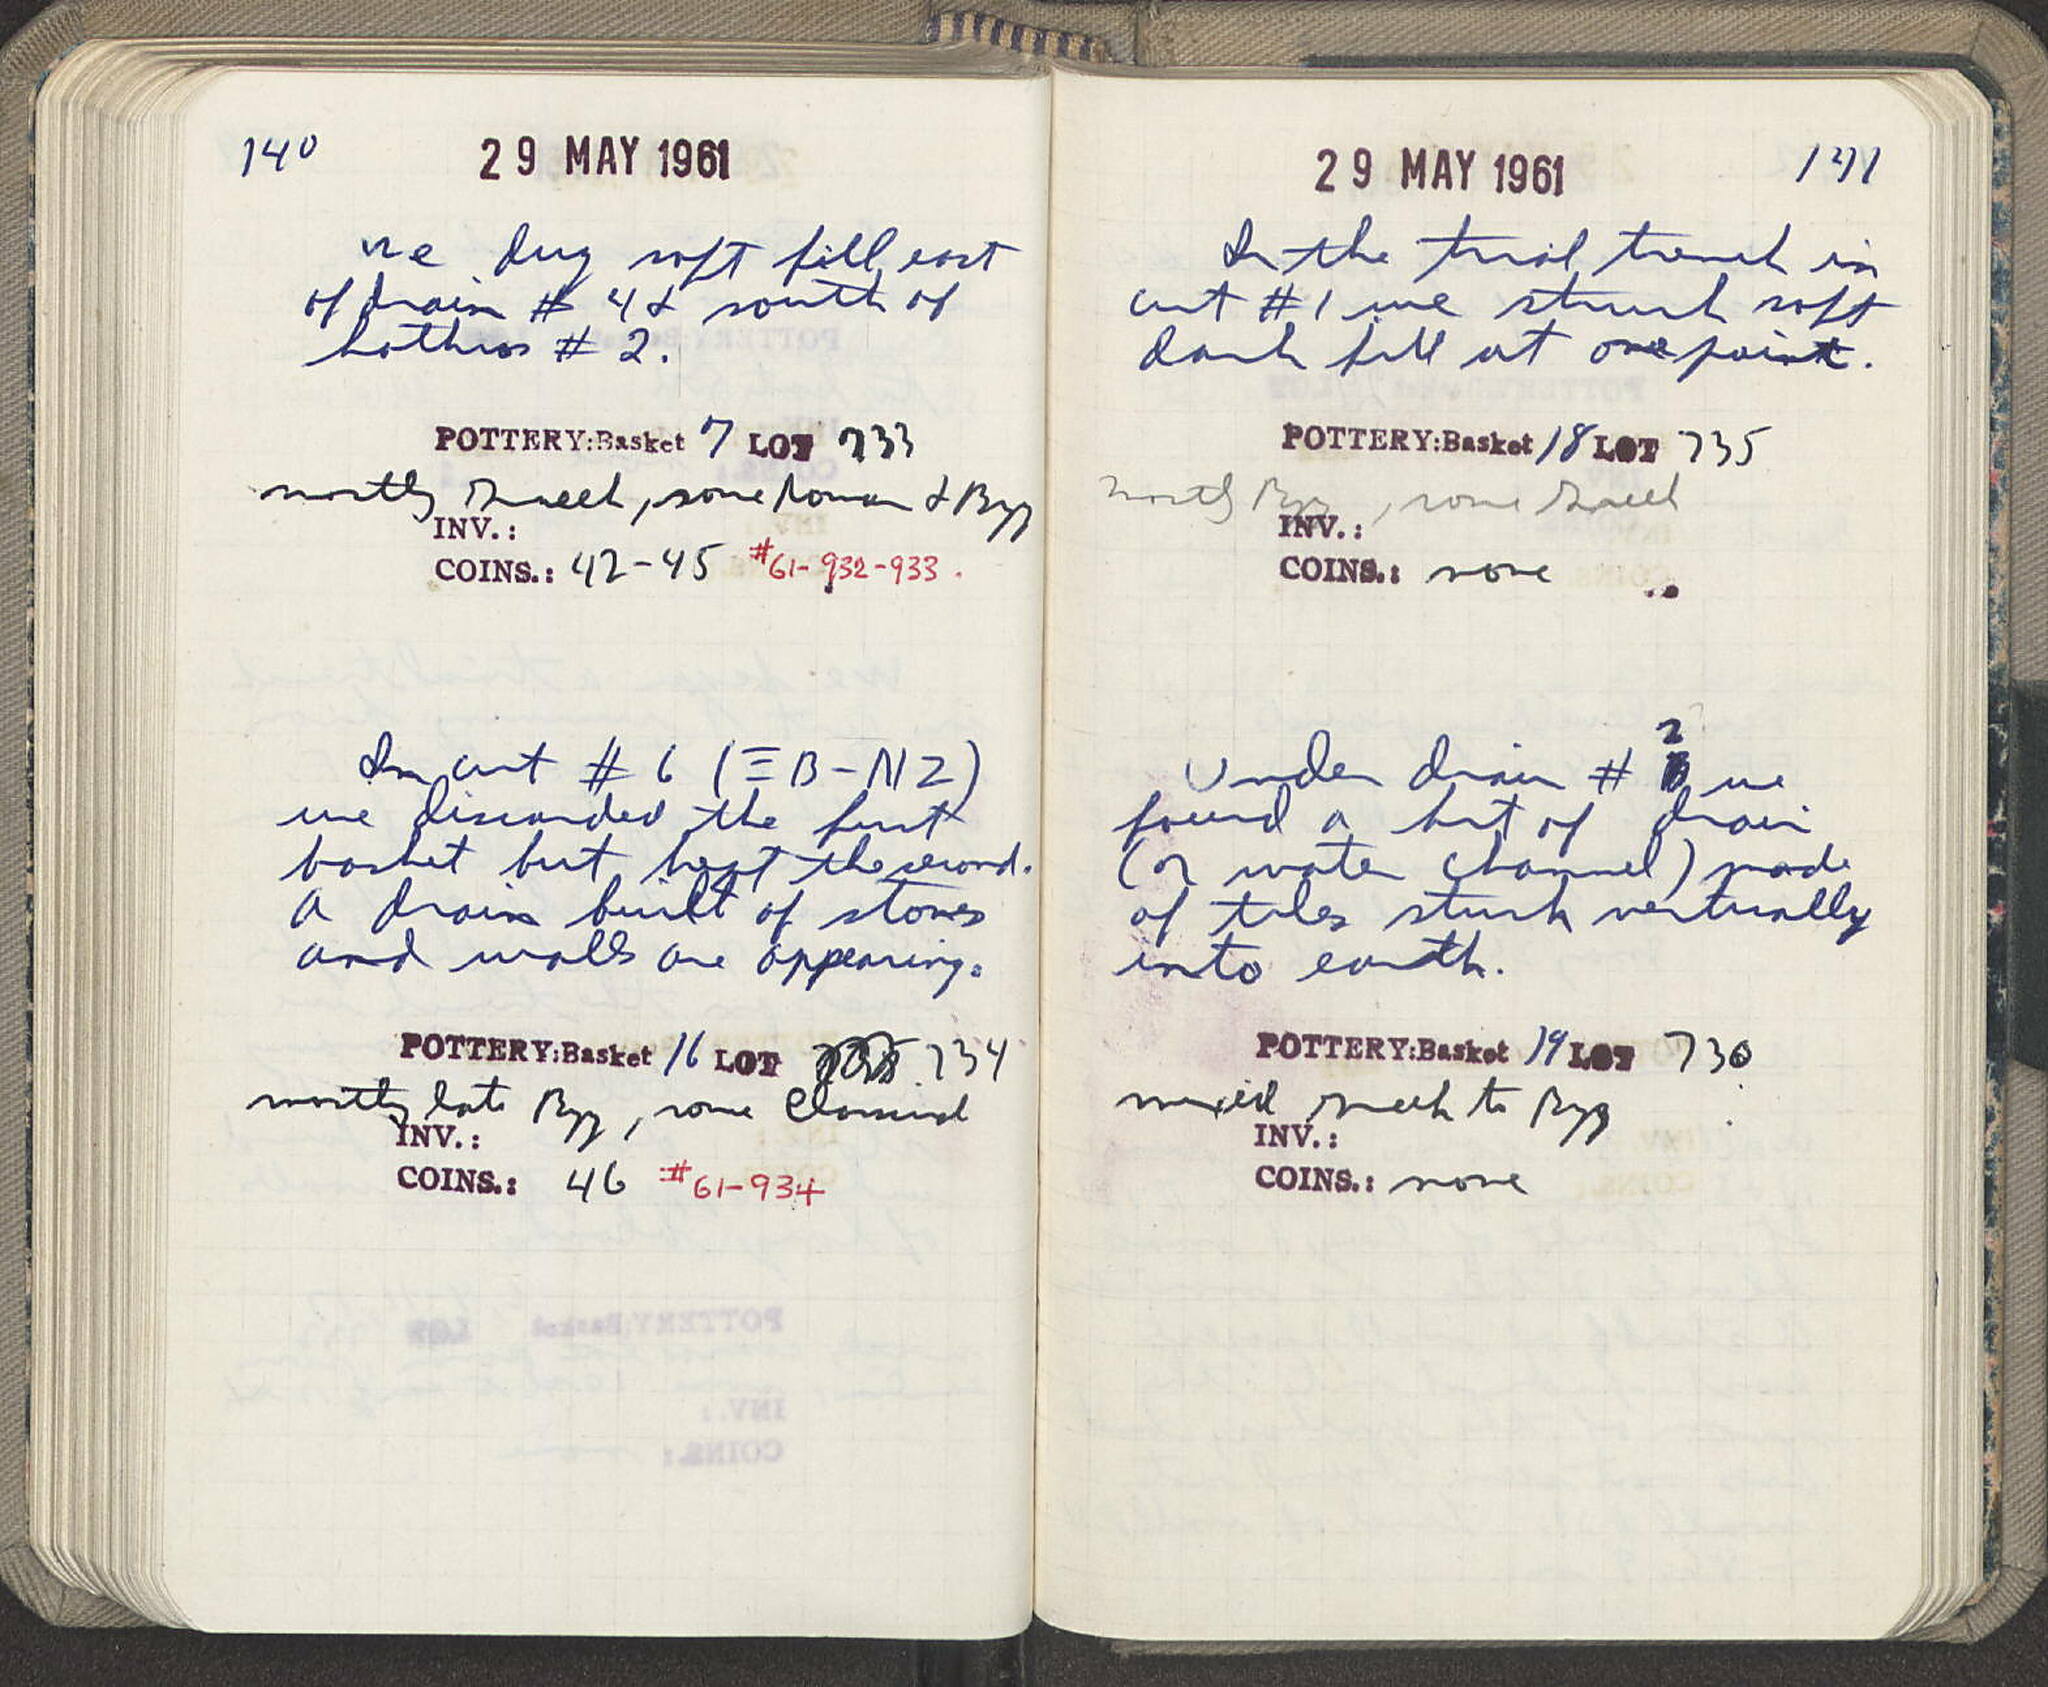 140
29 MAY 1961
we dug soft fill east
of drain # 4 & south of
bothros # 2.
POTTERY:Basket 7 LOT 733
mostly Greek, some Roman & Byz
INV.:
COINS.: 42-45 #61-932-933.
In cut # 6 (ΞB-NZ)
we discarded the first
basket but kept the second.
A drain built of stones
and walls are appearing.
POTTERY:Basket 16 LOT 734
mostly late Byz, some Classical
INV.:
COINS.: 46 #61-934
29 MAY 1961
141
In the trial trench in
cut #1 we struck soft
dark fill at one point.
POTTERY:Basket 18 LOT 735
mostly Byz, some Greek
INV.:
COINS.: none
Under drain # 2 we
found a bit of drain
(or water channel) made
of tiles stuck vertically
into earth.
POTTERY:Basket 19 LOT 736
mixed Greek to Byz
INV.:
COINS.: none